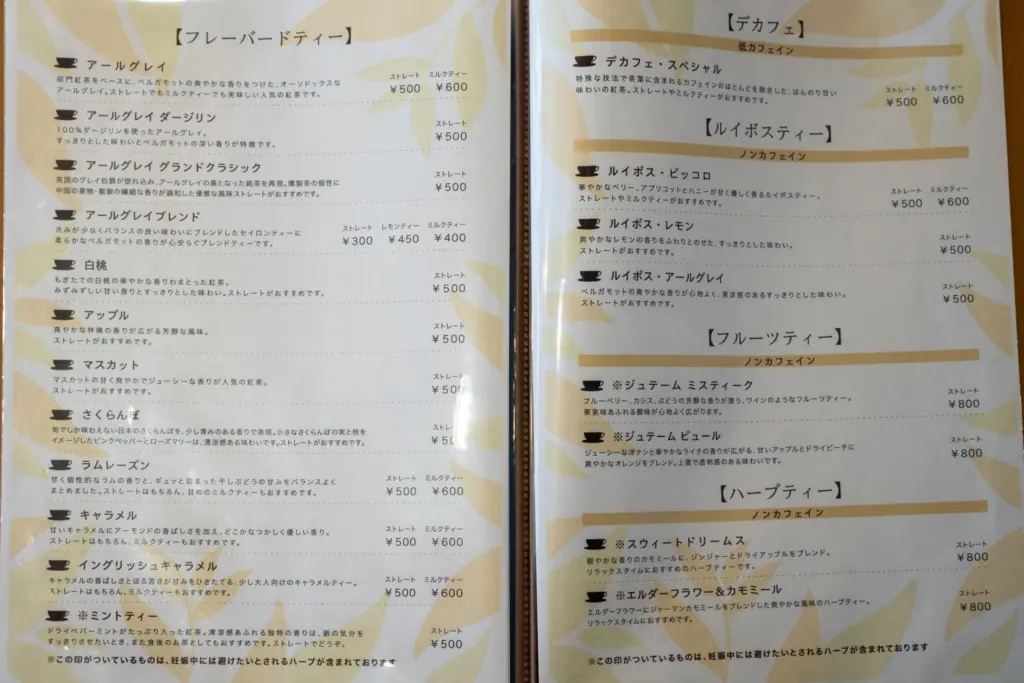 【フレーバードティー】
アールグレイ
ストレート ミルクティー
紅茶をベースに、ベルガモットの爽やかな香りをつけた、オーソドックスな
アールグレイ。ストレートでもミルクティーでも美味しい人気の紅茶です。
¥500 ¥600
アールグレイ ダージリン
ストレート
100%ダージリンを使ったアールグレイ。
すっきりとした味わいとベルガモットの深い香りが特徴です。
¥500
アールグレイ グランドクラシック
ストレート
英国のグレイ伯爵が惚れ込み、アールグレイの基となった銘茶を再現。燻製茶の個性に
中国の果物・龍眼の繊細な香りが調和した優雅な風味ストレートがおすすめです。
¥500
アールグレイブレンド
ストレート レモンティー ミルクティー
渋みが少なくバランスの良い味わいにブレンドしたセイロンティーに
柔らかなベルガモットの香りが心安らぐブレンドティーです。
¥300 ¥450 ¥400
白桃
ストレート
もぎたての白桃の華やかな香りわまとった紅茶。
みずみずしい甘い香りとすっきりとした味わい。ストレートがおすすめです。
¥500
アップル
ストレート
爽やかな林檎の香りが広がる芳醇な風味。
ストレートがおすすめです。
¥500
マスカット
ストレート
マスカットの甘く爽やかでジューシーな香りが人気の紅茶。
ストレートがおすすめです。
¥500
さくらんぼ
ストレート
旬でしか味わえない日本のさくらんぼを、少し青みのある香りで表現。小さなさくらんぼの実と枝を
イメージしたピンクペッパーとローズマリーは、清涼感ある味わいです。ストレートがおすすめです。
ラムレーズン
ストレート ミルクティー
甘く個性的なラムの香りと、ギュッと詰まった干しぶどうの甘みをバランスよく
まとめました。ストレートはもちろん、甘めのミルクティーもおすすめです。
¥500 ¥600
キャラメル
ストレート ミルクティー
甘いキャラメルにアーモンドの香ばしさを加え、どこかなつかしく優しい香り。
ストレートはもちろん、ミルクティーもおすすめです。
¥500 ¥600
イングリッシュキャラメル
ストレート ミルクティー
キャラメルの香ばしさとほろ苦さが甘みをひきたてる、少し大人向けのキャラメルティー。
ストレートはもちろん、ミルクティーもおすすめです。
¥500 ¥600
※ミントティー
ストレート
ドライペパーミントがたっぷり入った紅茶。清涼感あふれる独特の香りは、朝の気分を
すっきりさせたいとき、また食後のお茶としてもおすすめです。ストレートでどうぞ。
¥500
※この印がついているものは、妊娠中には避けたいとされるハーブが含まれております
【デカフェ】
低カフェイン
デカフェ・スペシャル
ストレート ミルクティー
特殊な技法で茶葉に含まれるカフェインのほとんどを除去した、ほんのり甘い
味わいの紅茶。ストレートやミルクティーがおすすめです。
¥500 ¥600
【ルイボスティー】
ノンカフェイン
ルイボス・ピッコロ
ストレート ミルクティー
華やかなベリー、アプリコットとハニーが甘く優しく香るルイボスティー。
ストレートやミルクティーがおすすめです。
¥500 ¥600
ルイボス・レモン
ストレート
爽やかなレモンの香りをふわりとのせた、すっきりとした味わい。
ストレートがおすすめです。
¥500
ルイボス・アールグレイ
ストレート
ベルガモットの爽やかな香りが心地よく、清涼感のあるすっきりとした味わい。
ストレートがおすすめです。
¥500
【フルーツティー】
ノンカフェイン
※ジュテーム ミスティーク
ストレート
ブルーベリー、カシス、ぶどうの芳醇な香りが漂う、ワインのようなフルーツティー。
果実味あふれる酸味が心地よく広がります。
¥800
※ジュテーム ピュール
ストレート
ジューシーな洋ナシと華やかなライチの香りが広がる、甘いアップルとドライピーチに
爽やかなオレンジをブレンド。上質で透明感のある味わいです。
¥800
【ハーブティー】
ノンカフェイン
※スウィートドリームス
ストレート
華やかな香りのカモミールに、ジンジャーとドライアップルをブレンド。
リラックスタイムにおすすめのハーブティーです。
¥800
※エルダーフラワー&カモミール
ストレート
エルダーフラワーにジャーマンカモミールをブレンドした爽やかな風味のハーブティー。
リラックスタイムにおすすめです。
¥800
※この印がついているものは、妊娠中には避けたいとされるハーブが含まれております